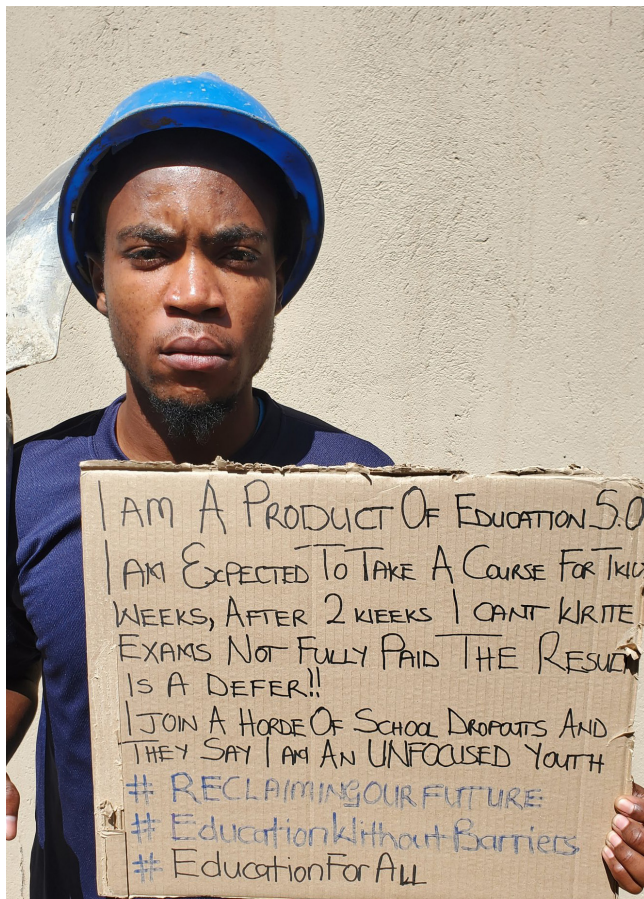 I AM A PRODUCT OF EDUCATION 5.0
I AM EXPECTED TO TAKE A COURSE FOR TWO
WEEKS, AFTER 2 WEEKS I CANT WRITE
EXAMS NOT FULLY PAID THE RESULT
IS A DEFER!!
I JOIN A HORDE OF SCHOOL DROPOUTS AND
THEY SAY I AM AN UNFOCUSED YOUTH
# RECLAIMINGOURFUTURE
# EducationWithoutBarriers
# EducationForALL